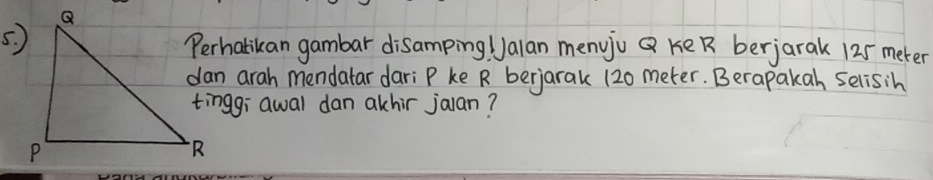 Q
5.) Perhatikan gambar disamping! Jalan menuju Q ke R berjarak 125 meter
dan arah mendatar dari P ke R berjarak 120 meter. Berapakah selisih
tinggi awal dan akhir jalan?
P
R